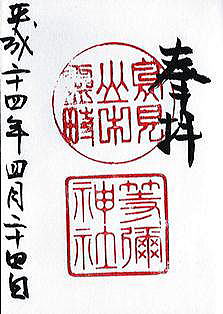 奉拝
鳥見
山中
靈畤
等彌
神社
平成二十四年四月二十四日